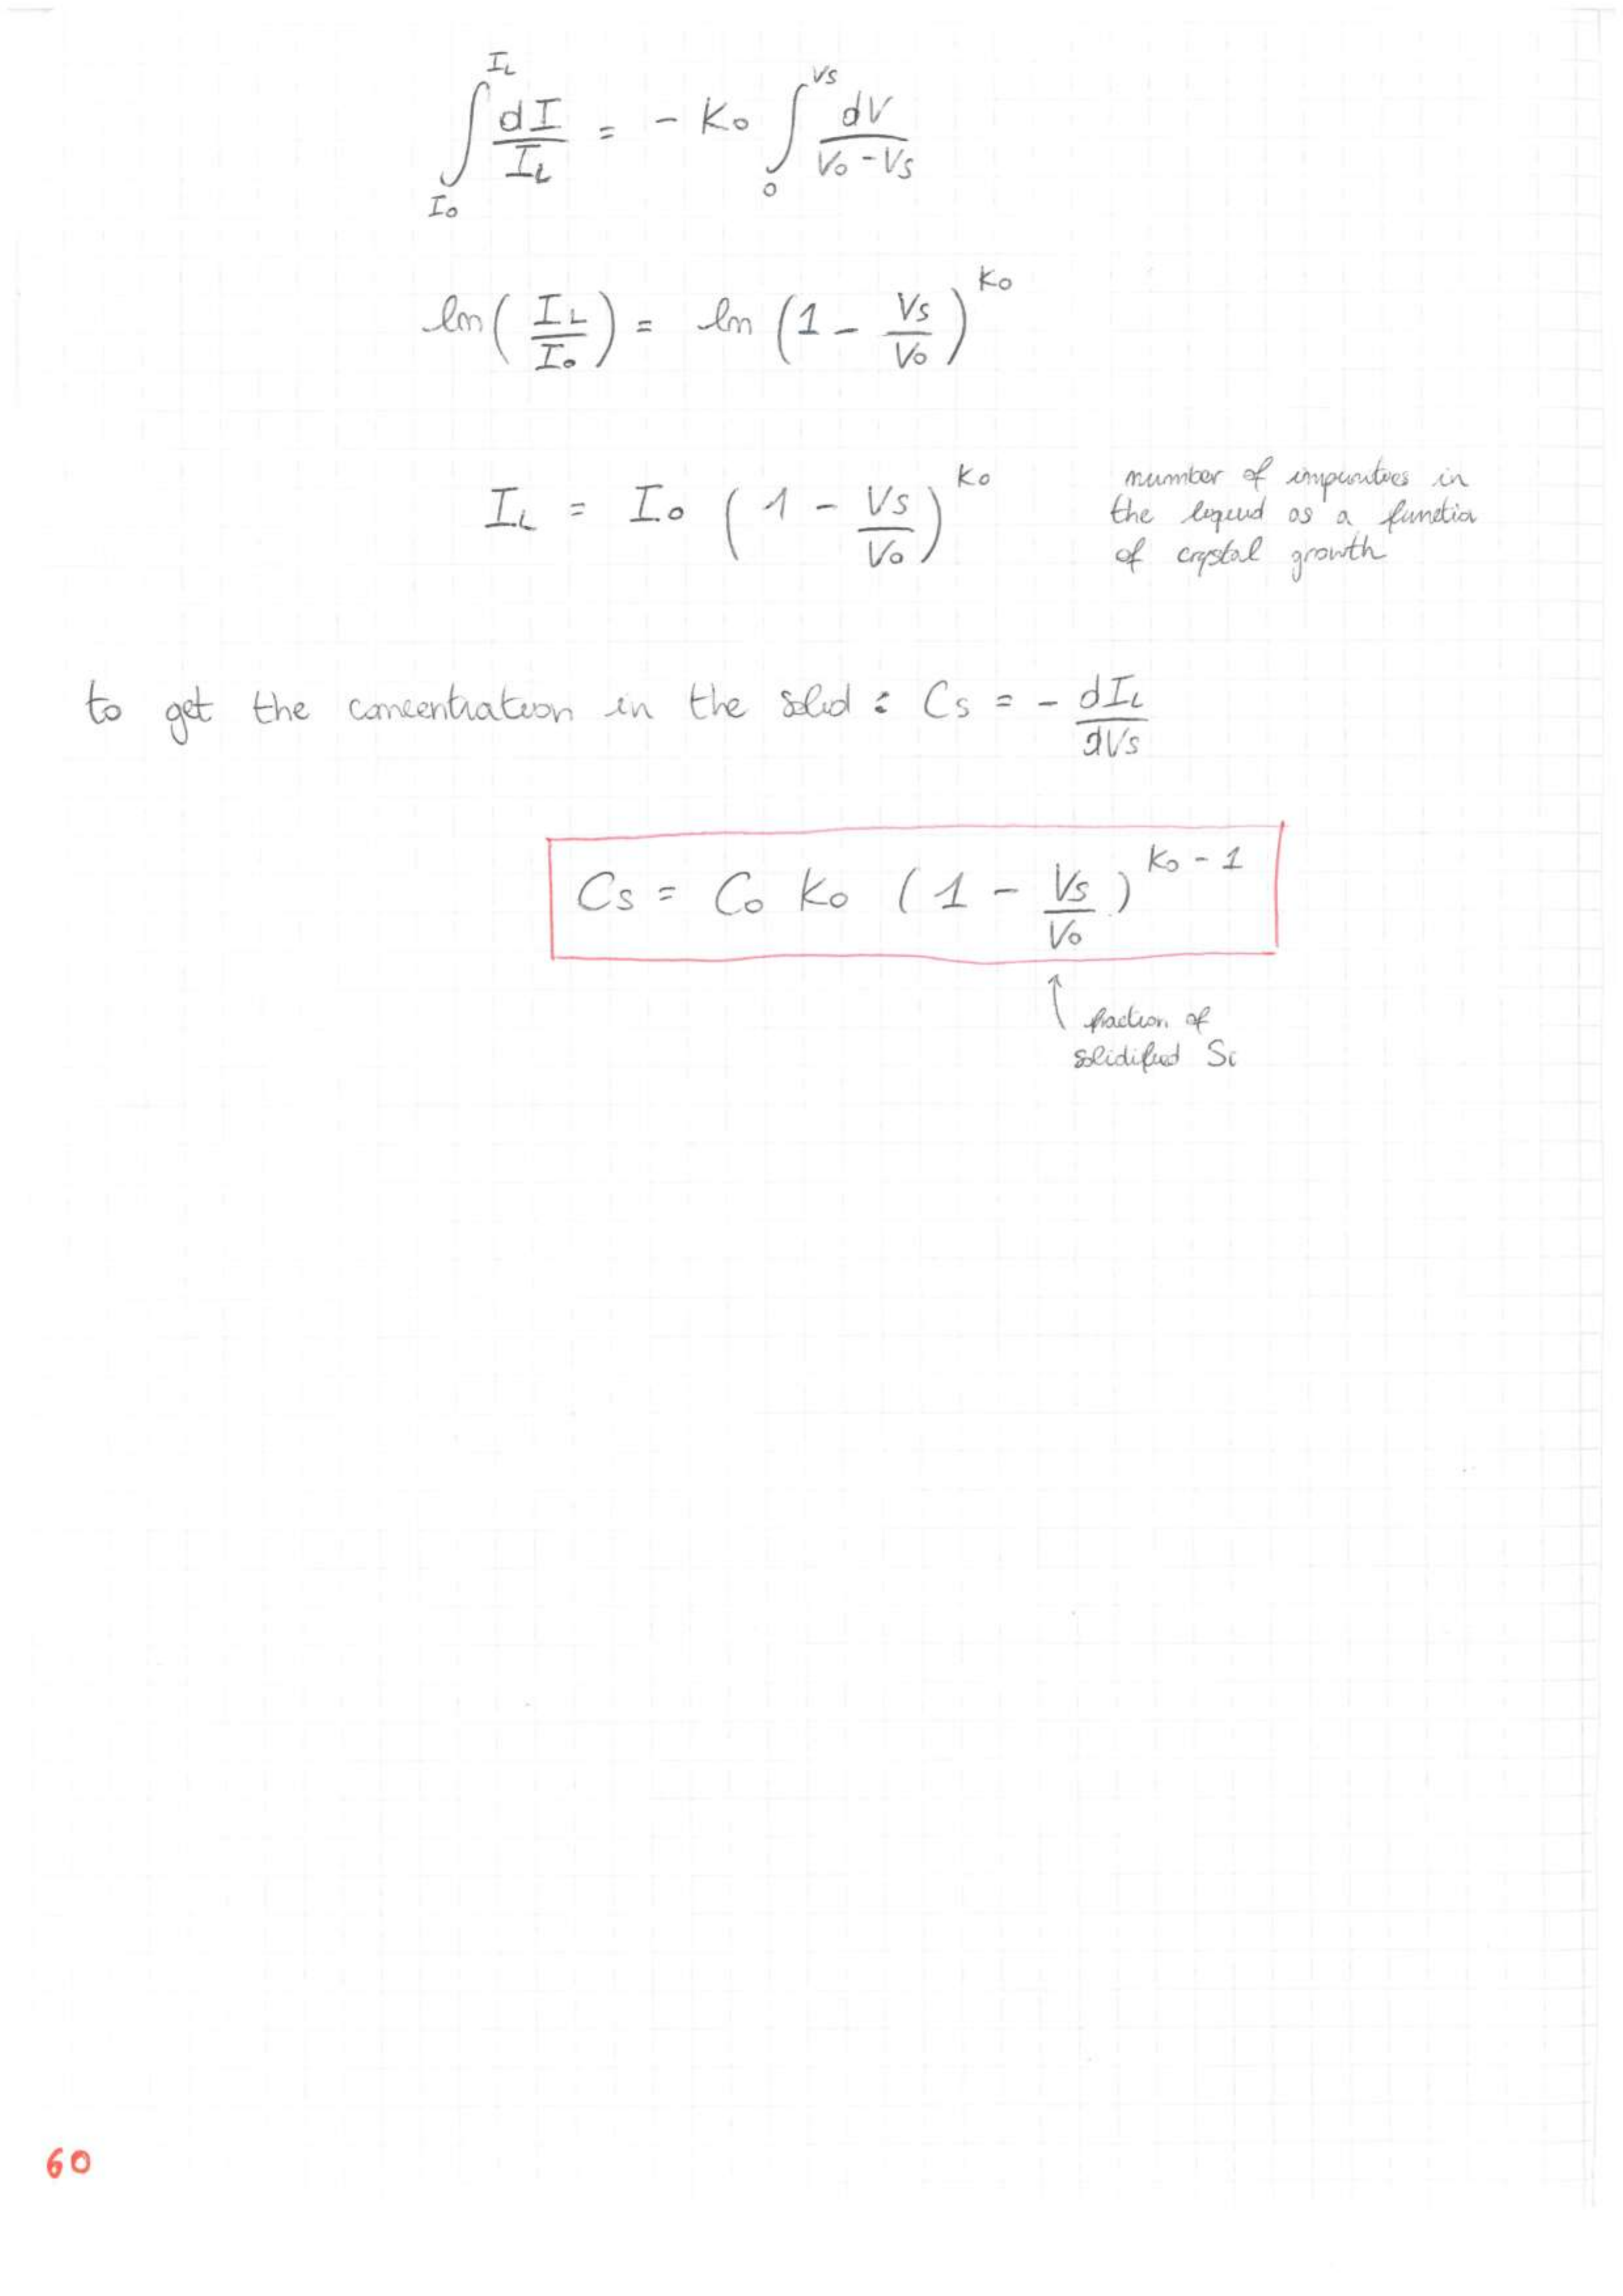 ∫_{I₀}^{I_L} dI/I_L = - K₀ ∫_0^{Vs} dV/(V₀-Vs)
ln(I_L/I₀) = ln(1 - Vs/V₀)^{K₀}
I_L = I₀ (1 - Vs/V₀)^{K₀}
number of impurities in
the liquid as a function
of crystal growth
to get the concentration in the solid : Cs = - dI_L/dVs
Cs = C₀ K₀ (1 - Vs/V₀)^{K₀ - 1}
fraction of
solidified Si
60